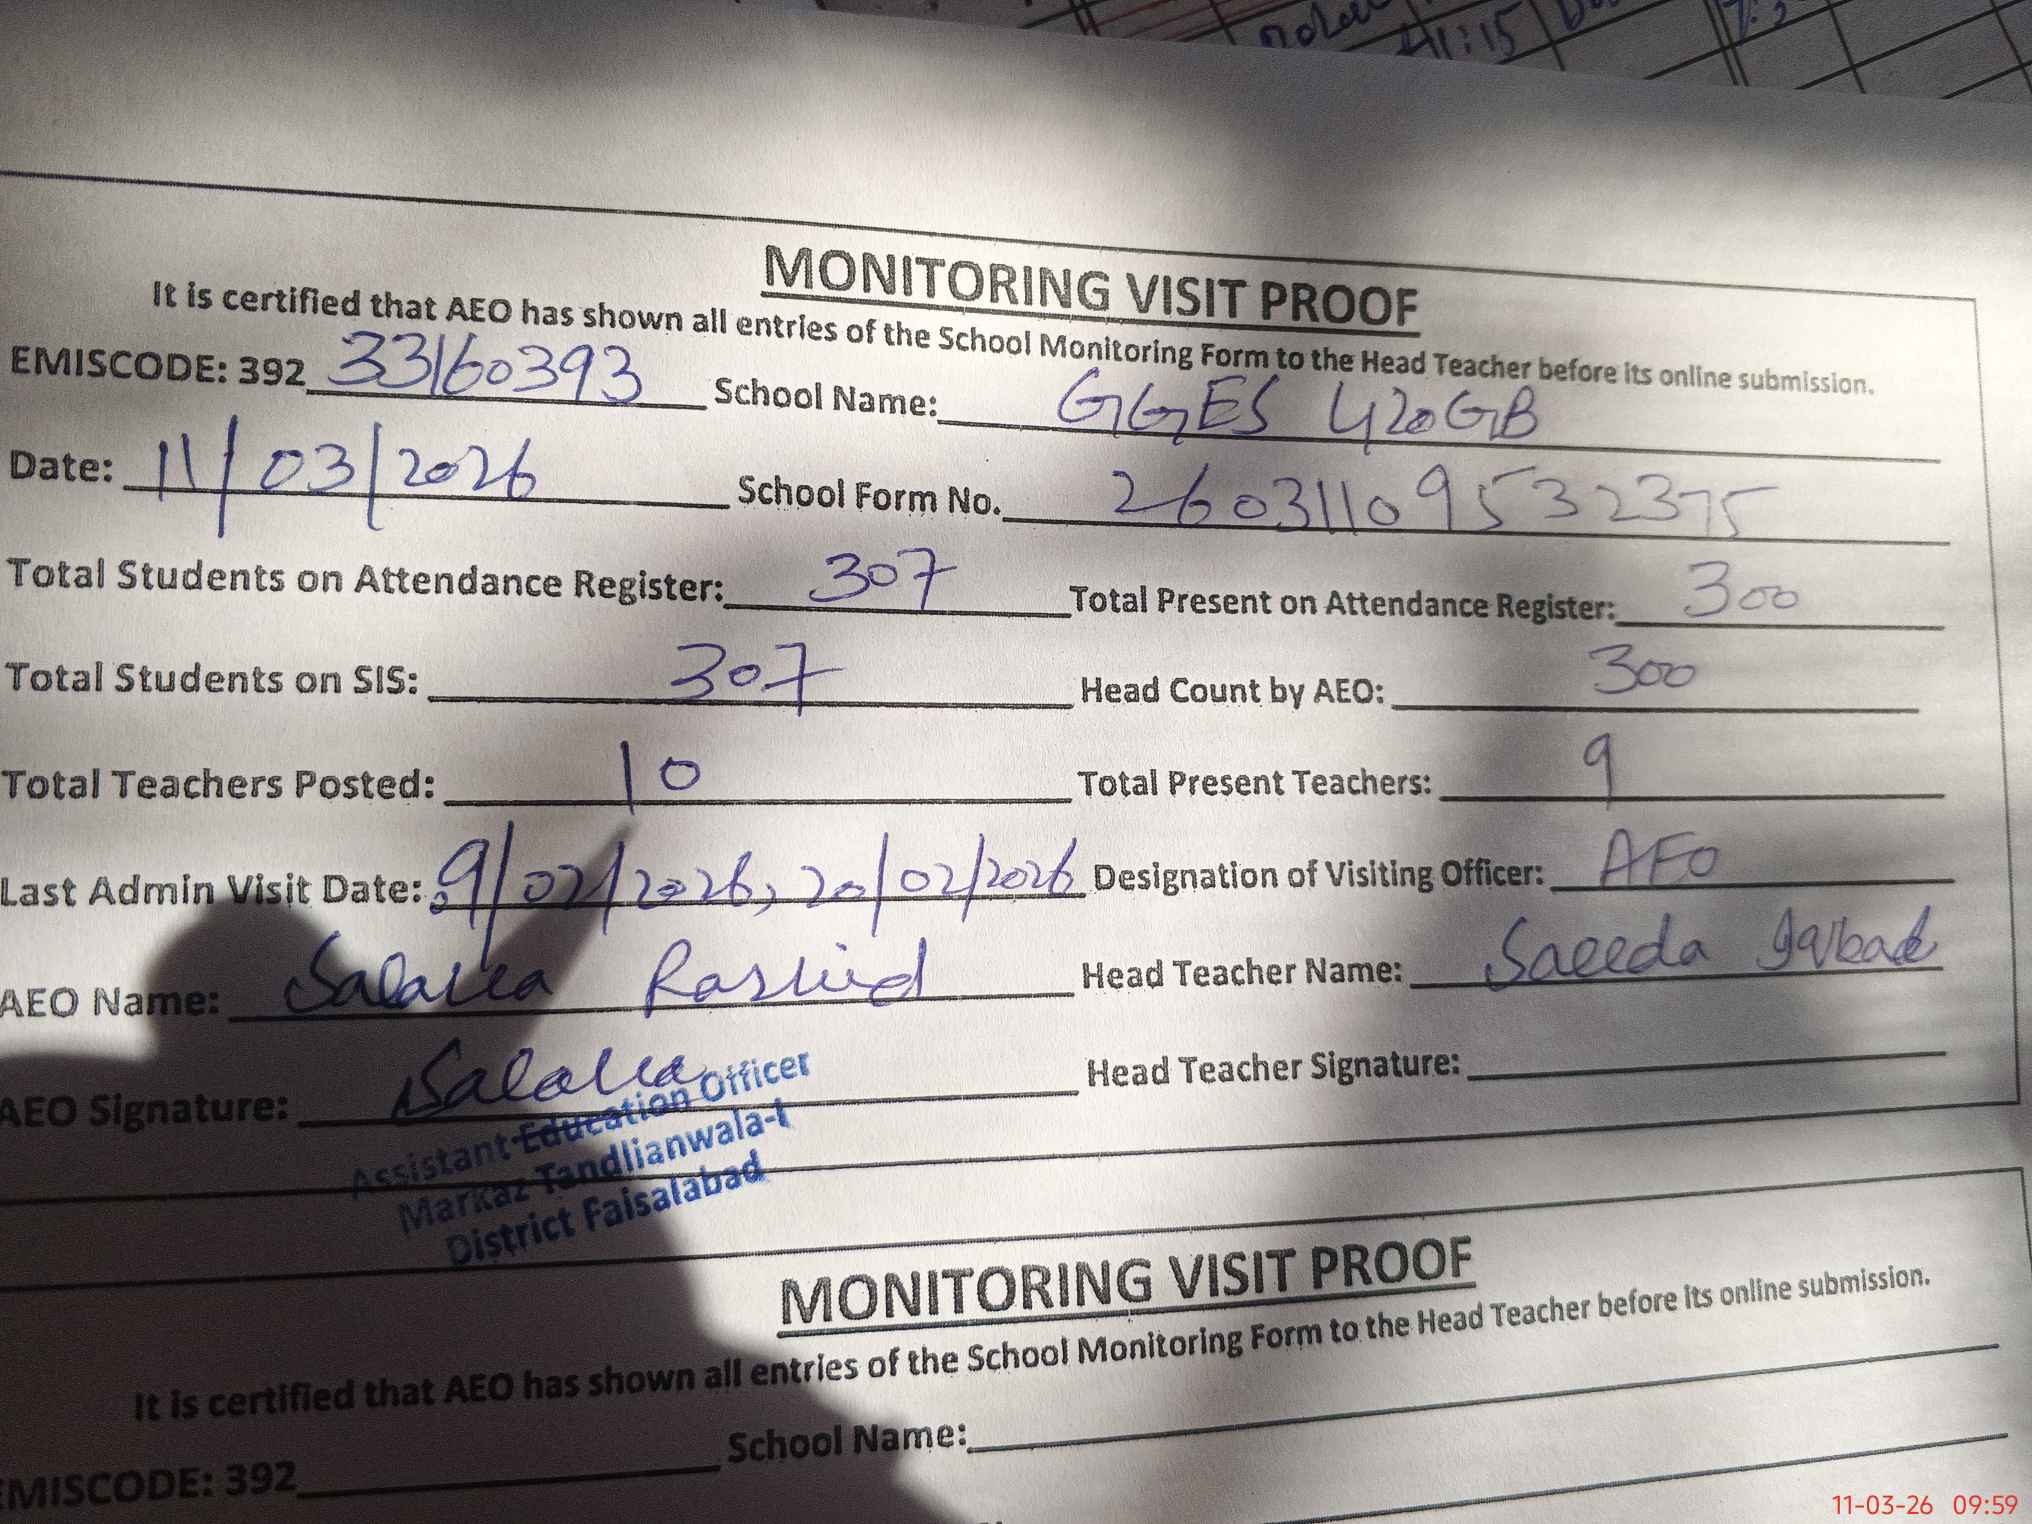 11:15
MONITORING VISIT PROOF
It is certified that AEO has shown all entries of the School Monitoring Form to the Head Teacher before its online submission.
EMISCODE: 392 33160393 School Name: GGES 420GB
Date: 11/03/2026 School Form No. 2603110953 2375
Total Students on Attendance Register: 307 Total Present on Attendance Register: 300
Total Students on SIS: 307 Head Count by AEO: 300
Total Teachers Posted: 10 Total Present Teachers: 9
Last Admin Visit Date: 9/02/2026, 20/02/2026 Designation of Visiting Officer: AEO
AEO Name: Rashid Head Teacher Name: Saeeda
AEO Signature: Head Teacher Signature:
Assistant Education Officer
Markaz Tandlianwala-I
District Faisalabad
MONITORING VISIT PROOF
It is certified that AEO has shown all entries of the School Monitoring Form to the Head Teacher before its online submission.
EMISCODE: 392 School Name:
11-03-26 09:59